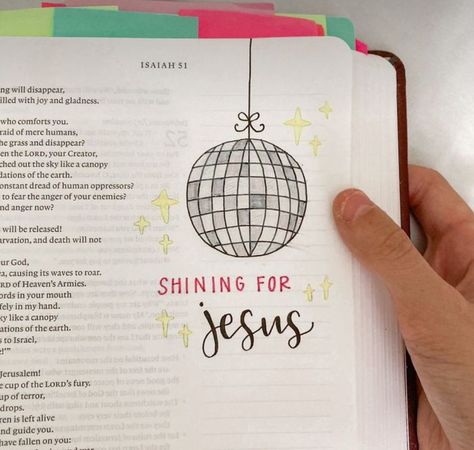 ISAIAH 51
ng will disappear,
illed with joy and gladness.
who comforts you.
raid of mere humans,
he grass and disappear?
en the LORD, your Creator,
ched out the sky like a canopy
dations of the earth.
onstant dread of human oppressors?
to fear the anger of your enemies?
nd anger now?
will be released!
arvation, and death will not
our God,
a, causing its waves to roar.
RD of Heaven's Armies.
ords in your mouth
fely in my hand.
ky like a canopy
ations of the earth.
s to Israel,
!'"
Jerusalem!
e cup of the LORD's fury.
up of terror,
drops.
ren is left alive
and guide you.
have fallen on you:
SHINING FOR
jesus